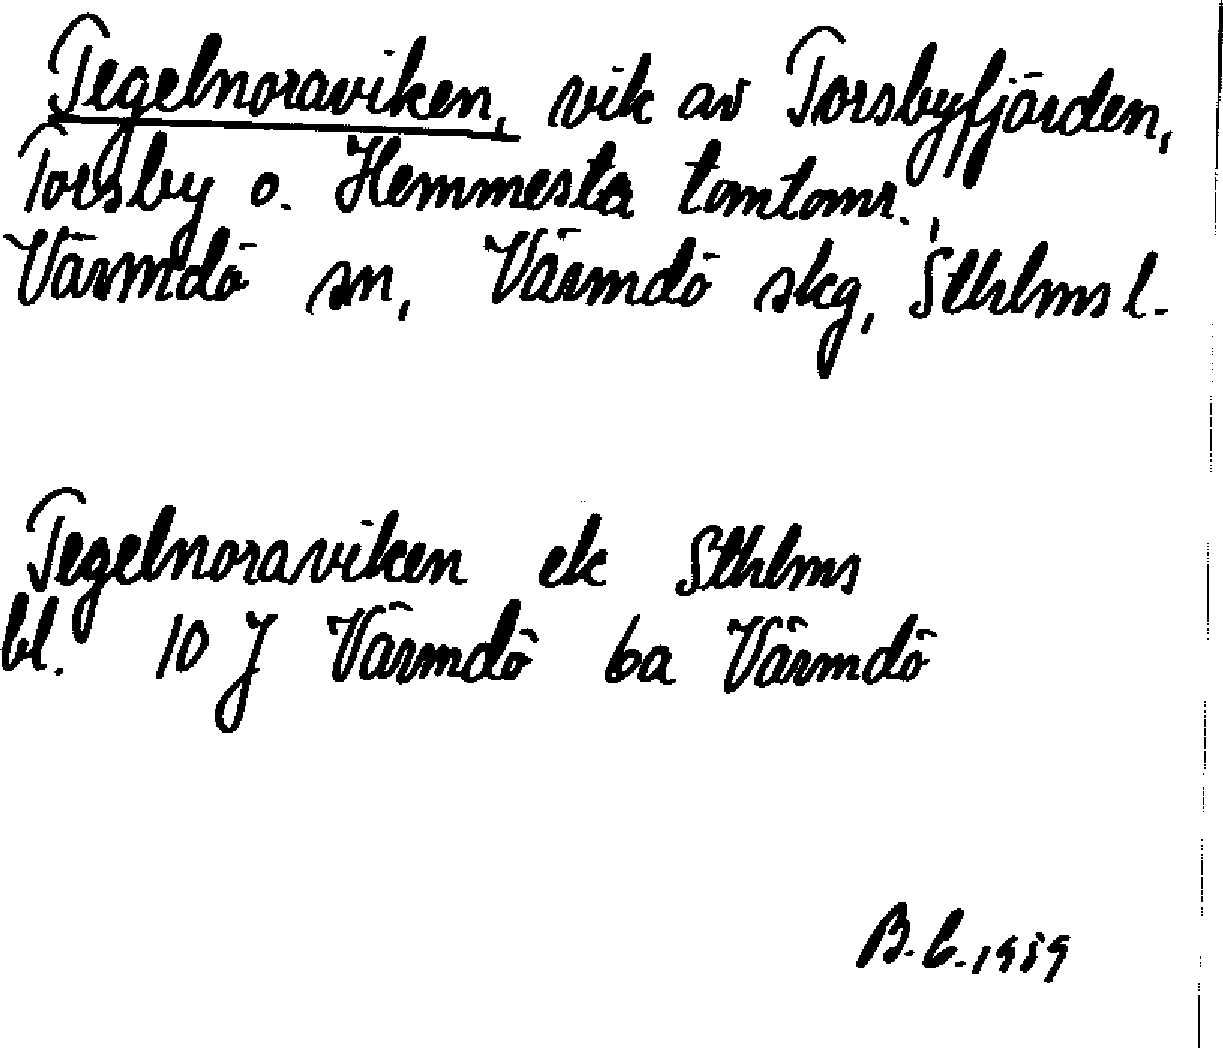 Tegelnoraviken, vik av Torsbyfjärden,
Torsby o. Hemmesta tomtomr.,
Värmdö sn, Värmdö skg, Sthlms l.
Tegelnoraviken ek Sthlms
bl. 10 J Värmdö 6a Värmdö
B. C. 1959